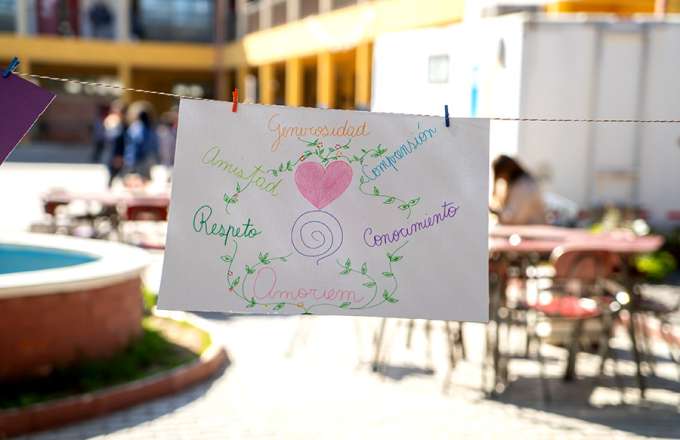 Generosidad
Amistad
Comprensión
Respeto
Conocimiento
Amoriem